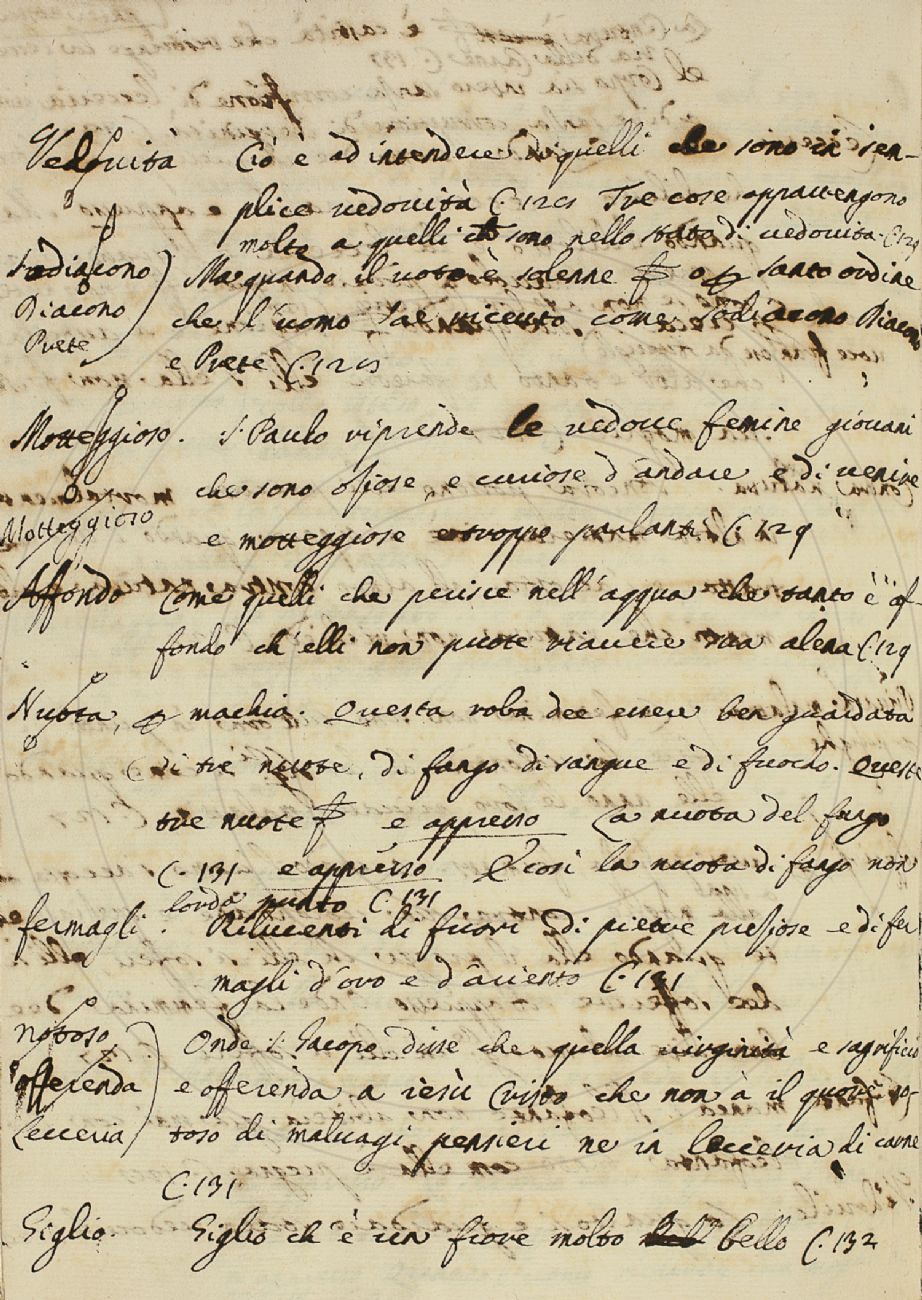 Vedouità Ciò è ad intendere di quelli che sono in sen-
plice vedouità C. 128 Tre cose appartengono
molto a quelli che sono nello stato di vedouita C. 129
Sodiacono Ma quando il voto è solenne o santo ordine
Diacono che l'uomo àe riceuto come Sodiacono Diacono
Prete e Prete C. 128
Motteggioso. S. Paulo riprende le vedove femine giovani
che sono oziose e curiose d'andare e di venire
Motteggioso e motteggiose e troppo parlanti C. 129
Affondo Come quelli che perisce nell'acqua che tanto è af-
fondo ch'elli non puote riavere sua alena C. 129
Nuota, machia. Questa roba dee essere ben guardata
di tre nuote, di fango di sangue e di fuocho. Queste
tre nuote e appresso La nuota del fango
C. 131 e appresso E così la nuota di fango non
lorda punto C. 131
fermagli. Rilucenti di fuori di pietre preziose e di fer
magli d'oro e d'ariento C. 131
notoso Onde S. Jacopo disse che quella virginità e sagrificio
offerenda e offerenda a iesù Cristo che non à il quore no-
Lecceria toso di malvagi pensieri ne in lecceria di carne
C. 131
Giglio Giglio ch'è un fiore molto bello C. 132